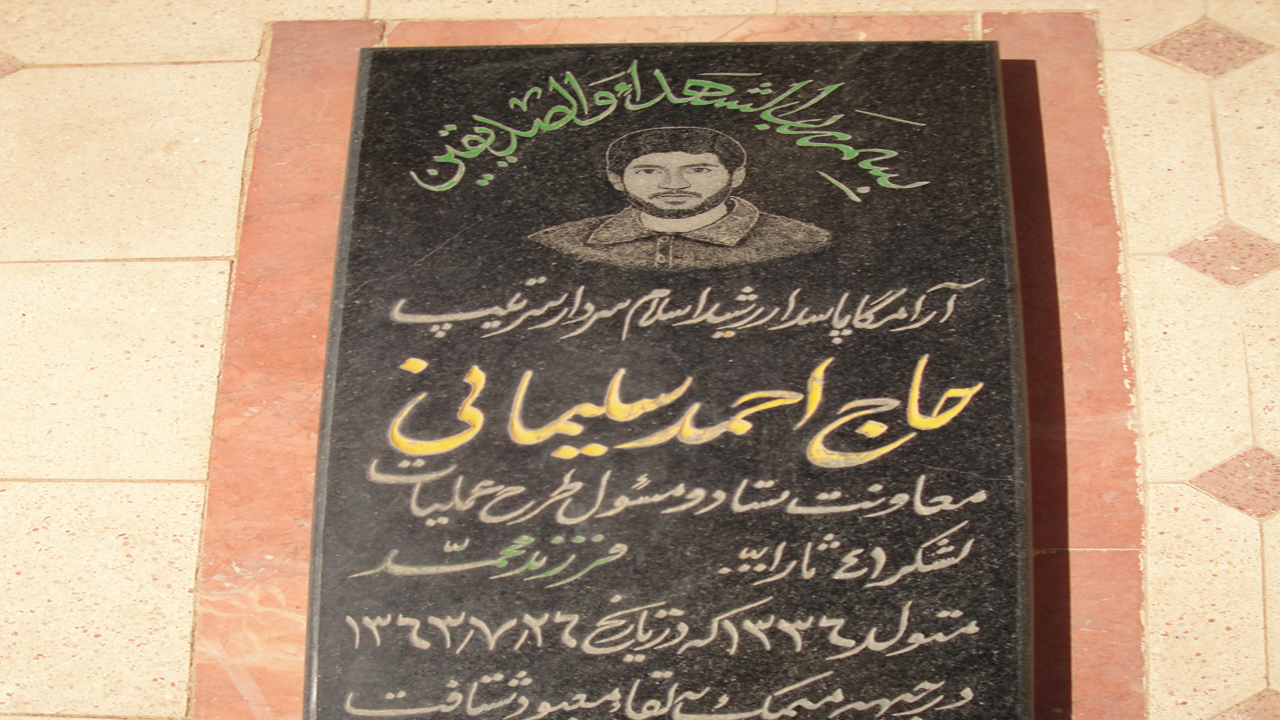 بسم رب الشهداء والصدیقین
آرامگا پاسدار رشید اسلام سردار سرتیپ
حاج احمد سلیمانی
معاونت ستاد و مسئول طرح عملیات
لشکر ٤١ ثارالله فرزند محمد
متولد ١٣٣٦ که در تاریخ ١٣٦٣/٧/٢٦
در جبهه میمک به لقاء معبود شتافت